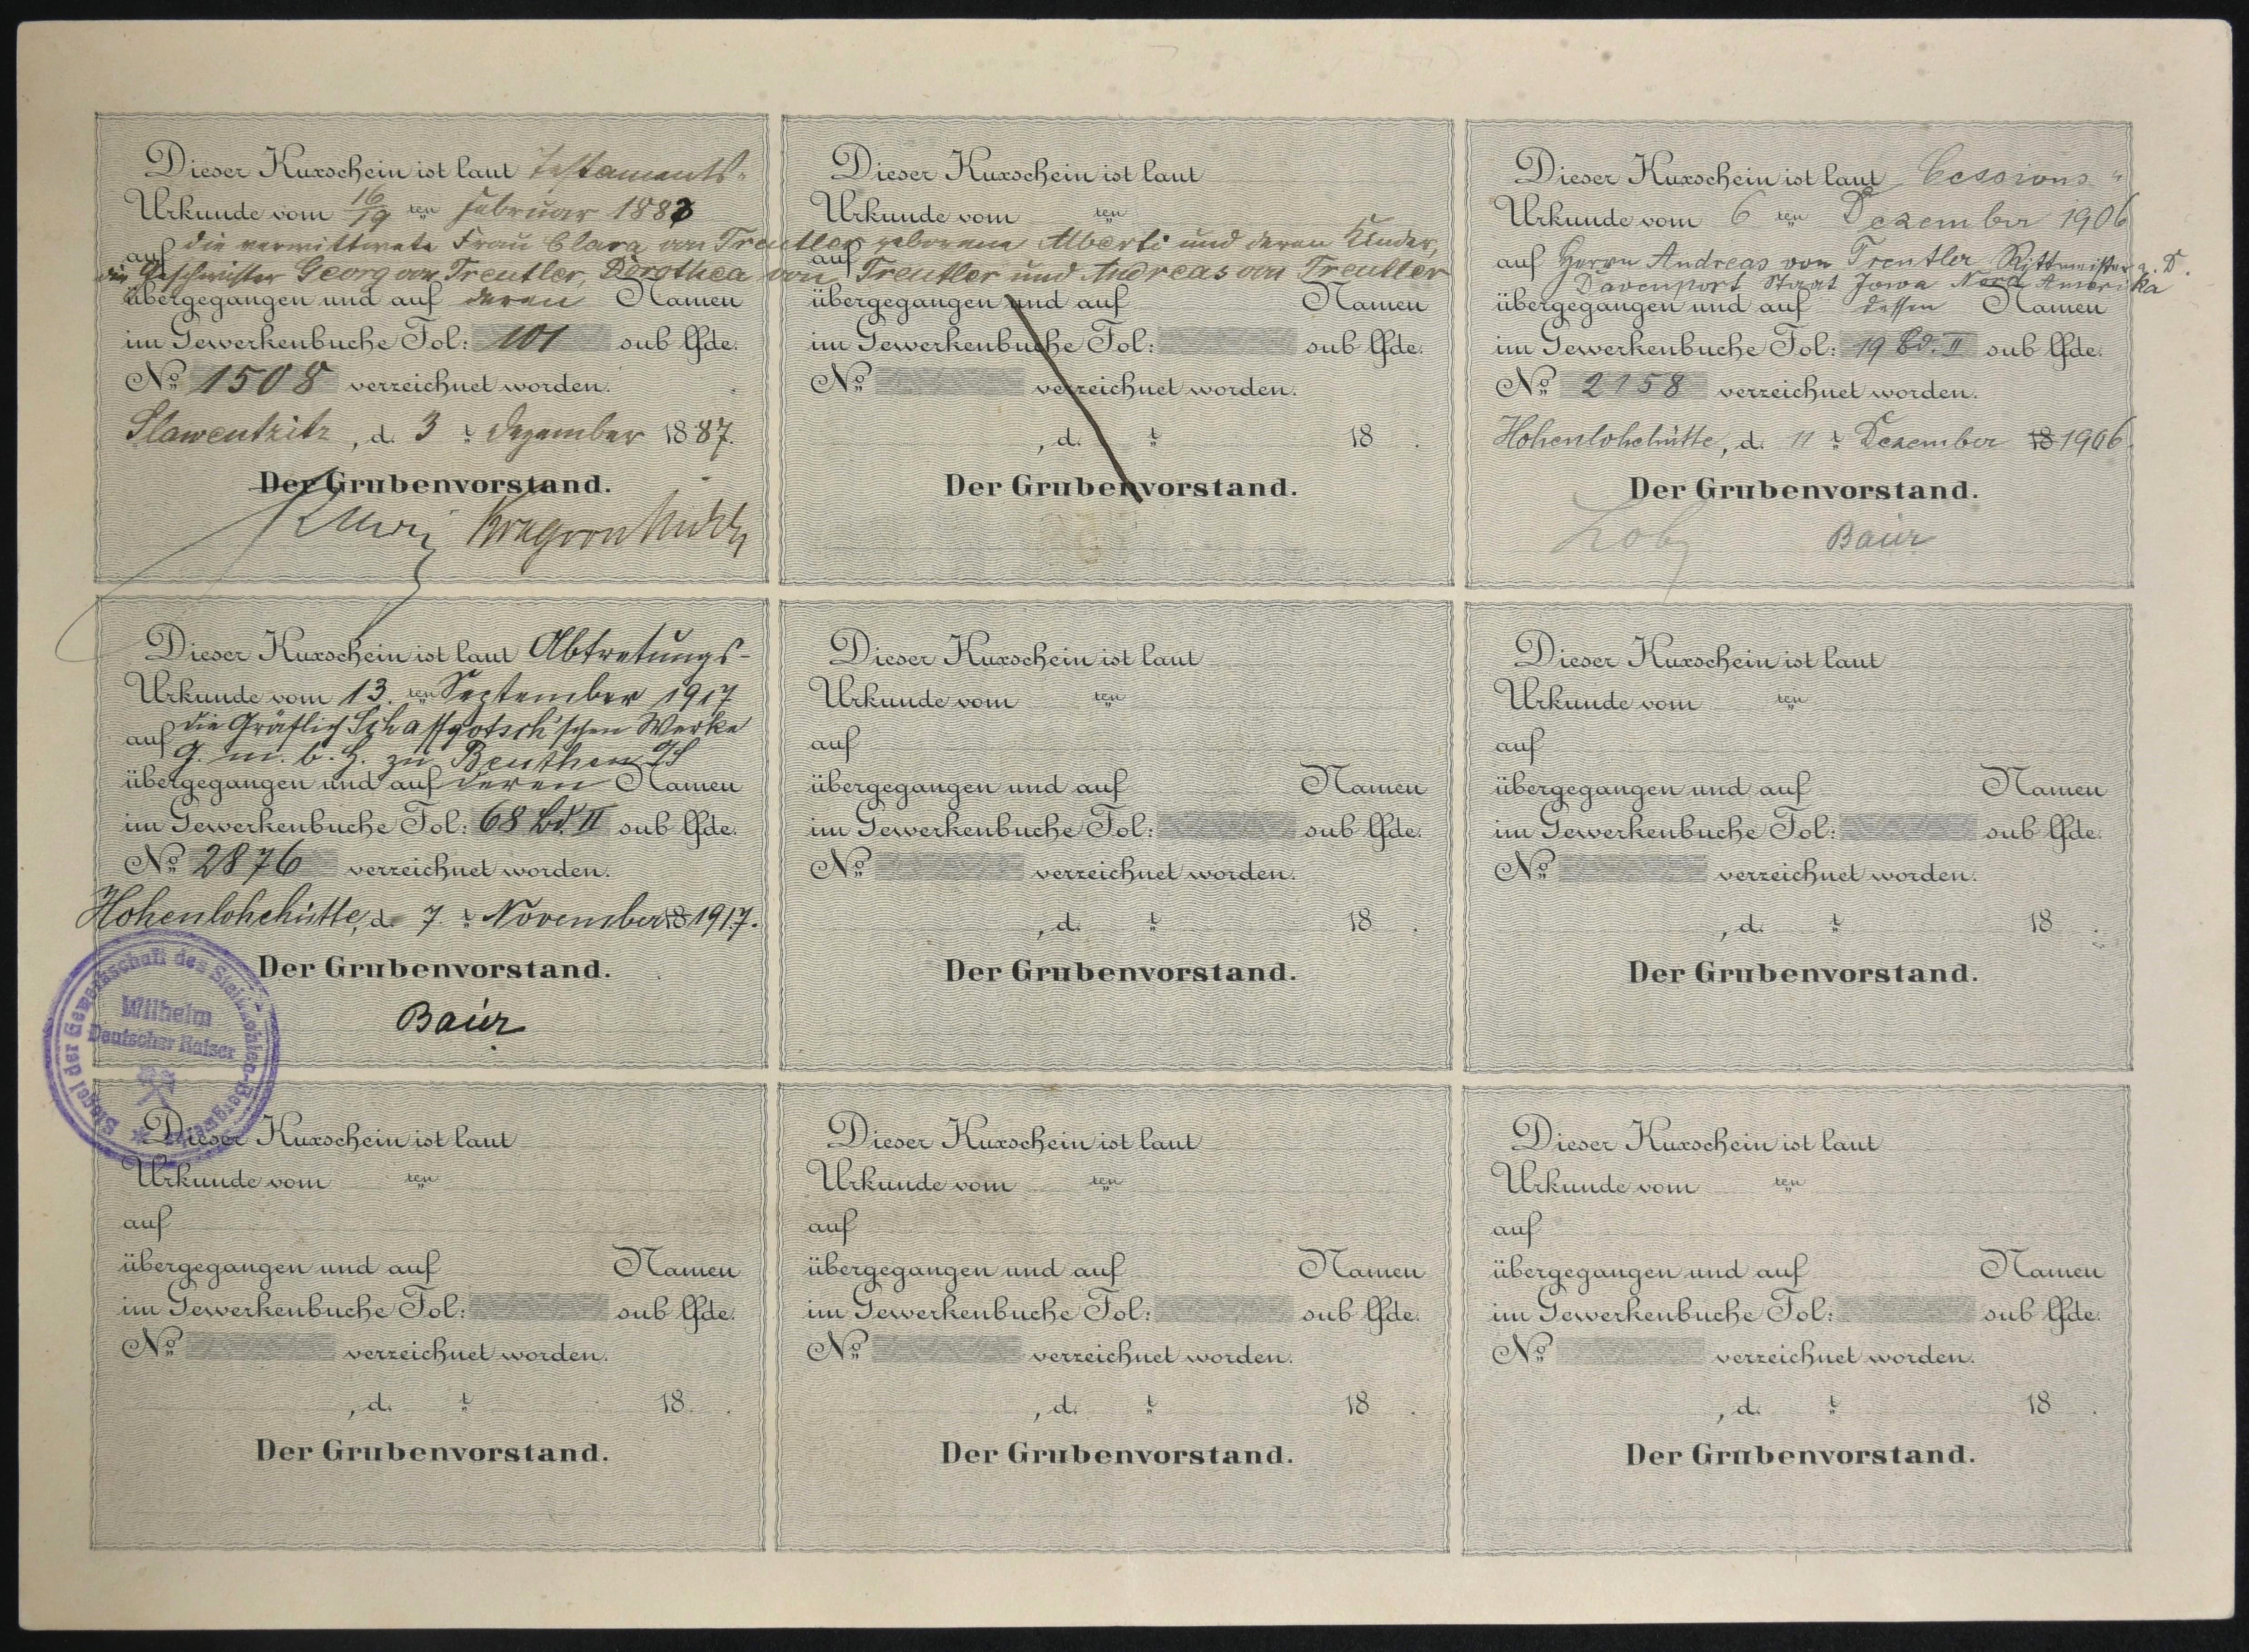 Dieser Kuxschein ist laut Testaments-
Urkunde vom 16/19 ten Februar 1883
auf die verwittwete Frau Clara von Treutler geborene Alberti und deren Kinder,
die Geschwister Georg von Treutler, Dorothea von Treutler und Andreas von Treutler
übergegangen und auf deren Namen
im Gewerkenbuche Fol: 101 sub lfde.
No 1508 verzeichnet worden.
Slawentzitz, d. 3 t Dezember 1887.
Der Grubenvorstand.
Dieser Kuxschein ist laut
Urkunde vom ten
auf
übergegangen und auf Namen
im Gewerkenbuche Fol: sub lfde.
No verzeichnet worden.
, d. t 18 .
Der Grubenvorstand.
Dieser Kuxschein ist laut Cessions-
Urkunde vom 6 ten Dezember 1906
auf Herrn Andreas von Treutler Rittmeister a. D.
Davenport Staat Jowa Nord Amerika
übergegangen und auf dessen Namen
im Gewerkenbuche Fol: 19 Bd. II sub lfde.
No 2158 verzeichnet worden.
Hohenlohehütte, d. 11 t Dezember 18 1906.
Der Grubenvorstand.
Lob Baur
Dieser Kuxschein ist laut Abtretungs-
Urkunde vom 13. ten September 1917
auf die Gräflich Schaffgotsch'schen Werke
G. m. b. H. zu Beuthen OS
übergegangen und auf deren Namen
im Gewerkenbuche Fol: 68 Bd. II sub lfde.
No 2876 verzeichnet worden.
Hohenlohehütte, d. 7. t November 18 1917.
Der Grubenvorstand.
Baur
Siegel der Gewerkschaft des Steinkohlen-Bergwerks
Wilhelm
Deutscher Kaiser
Dieser Kuxschein ist laut
Urkunde vom ten
auf
übergegangen und auf Namen
im Gewerkenbuche Fol: sub lfde.
No verzeichnet worden.
, d. t 18 .
Der Grubenvorstand.
Dieser Kuxschein ist laut
Urkunde vom ten
auf
übergegangen und auf Namen
im Gewerkenbuche Fol: sub lfde.
No verzeichnet worden.
, d. t 18 .
Der Grubenvorstand.
Dieser Kuxschein ist laut
Urkunde vom ten
auf
übergegangen und auf Namen
im Gewerkenbuche Fol: sub lfde.
No verzeichnet worden.
, d. t 18 .
Der Grubenvorstand.
Dieser Kuxschein ist laut
Urkunde vom ten
auf
übergegangen und auf Namen
im Gewerkenbuche Fol: sub lfde.
No verzeichnet worden.
, d. t 18 .
Der Grubenvorstand.
Dieser Kuxschein ist laut
Urkunde vom ten
auf
übergegangen und auf Namen
im Gewerkenbuche Fol: sub lfde.
No verzeichnet worden.
, d. t 18 .
Der Grubenvorstand.